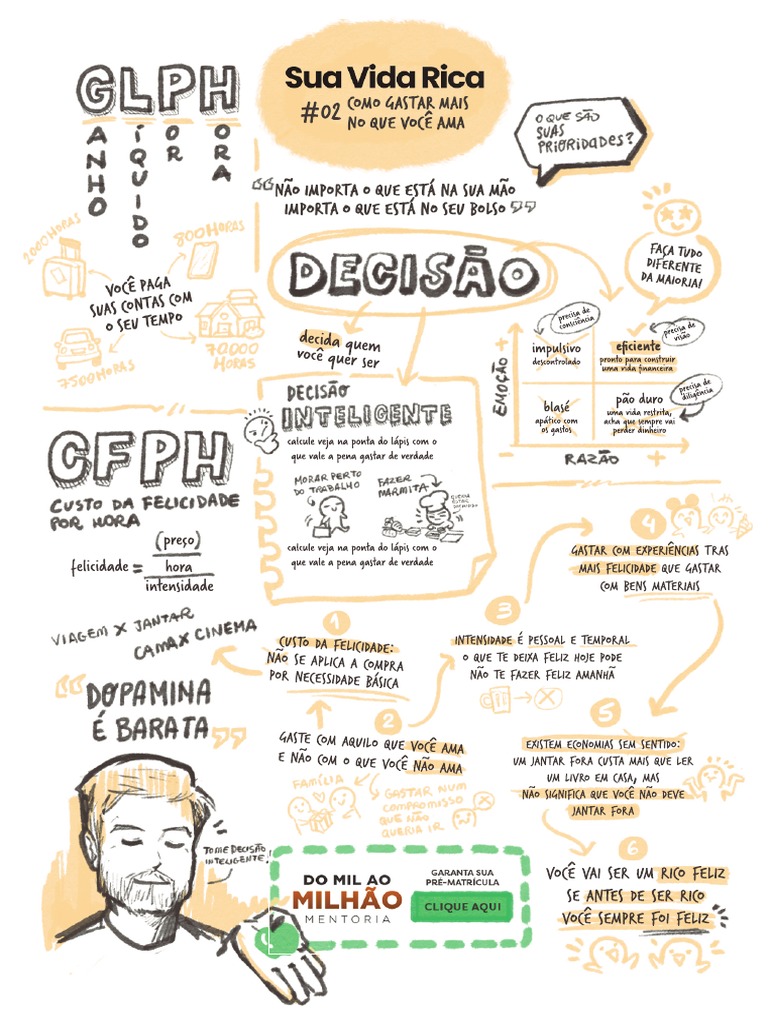 GLPH
GANHO
LÍQUIDO
POR
HORA
Sua Vida Rica
#02 COMO GASTAR MAIS
NO QUE VOCÊ AMA
O QUE SÃO
SUAS
PRIORIDADES?
“NÃO IMPORTA O QUE ESTÁ NA SUA MÃO
IMPORTA O QUE ESTÁ NO SEU BOLSO”
2000 HORAS
800 HORAS
VOCÊ PAGA
SUAS CONTAS COM
O SEU TEMPO
7500 HORAS
70.000
HORAS
DECISÃO
decida quem
você quer ser
FAÇA TUDO
DIFERENTE
DA MAIORIA!
EMOÇÃO +
-
precisa de
consciência
impulsivo
descontrolado
precisa de
visão
eficiente
pronto para construir
uma vida financeira
blasé
apático com
os gastos
precisa de
diligência
pão duro
uma vida restrita,
acha que sempre vai
perder dinheiro
- RAZÃO +
DECISÃO
INTELIGENTE
calcule veja na ponta do lápis com o
que vale a pena gastar de verdade
MORAR PERTO
DO TRABALHO
FAZER
MARMITA
calcule veja na ponta do lápis com o
que vale a pena gastar de verdade
CFPH
CUSTO DA FELICIDADE
POR HORA
felicidade = (preço)
hora
intensidade
VIAGEM X JANTAR
CAMA X CINEMA
“DOPAMINA
É BARATA”
TOME DECISÃO
INTELIGENTE!
1
CUSTO DA FELICIDADE:
NÃO SE APLICA A COMPRA
POR NECESSIDADE BÁSICA
2
GASTE COM AQUILO QUE VOCÊ AMA
E NÃO COM O QUE VOCÊ NÃO AMA
FAMÍLIA
GASTAR NUM
COMPROMISSO
QUE NÃO
QUERIA IR
3
INTENSIDADE É PESSOAL E TEMPORAL
O QUE TE DEIXA FELIZ HOJE PODE
NÃO TE FAZER FELIZ AMANHÃ
4
GASTAR COM EXPERIÊNCIAS TRAS
MAIS FELICIDADE QUE GASTAR
COM BENS MATERIAIS
5
EXISTEM ECONOMIAS SEM SENTIDO:
UM JANTAR FORA CUSTA MAIS QUE LER
UM LIVRO EM CASA, MAS
NÃO SIGNIFICA QUE VOCÊ NÃO DEVE
JANTAR FORA
6
VOCÊ VAI SER UM RICO FELIZ
SE ANTES DE SER RICO
VOCÊ SEMPRE FOI FELIZ
DO MIL AO
MILHÃO
MENTORIA
GARANTA SUA
PRÉ-MATRÍCULA
CLIQUE AQUI